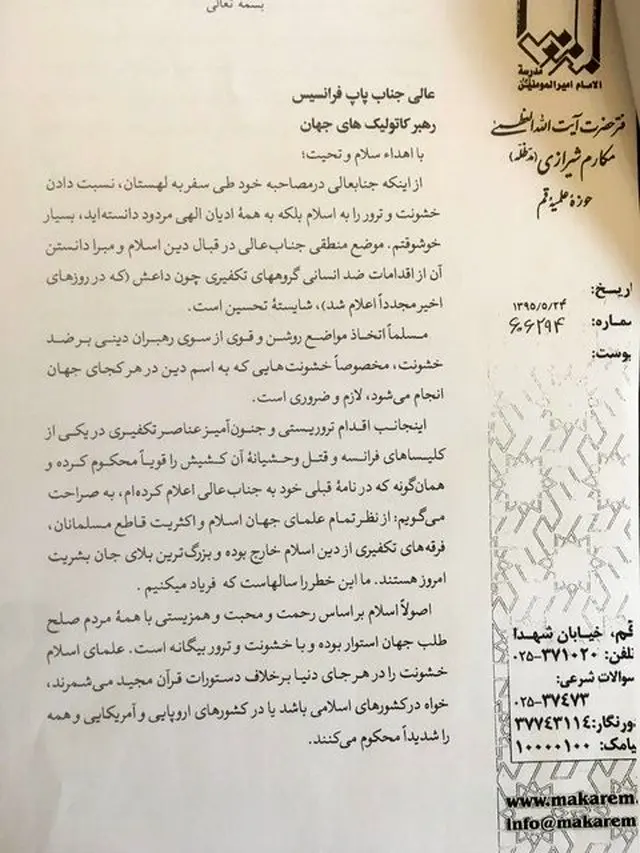 بسمه تعالی
مدرسة
الامام امیرالمومنین
دفتر حضرت آیت الله العظمی
مکارم شیرازی (مدظله)
حوزه علمیه قم
عالی جناب پاپ فرانسیس
رهبر کاتولیک های جهان
با اهداء سلام و تحیت؛
از اینکه جنابعالی درمصاحبه خود طی سفر به لهستان، نسبت دادن
خشونت و ترور را به اسلام بلکه به همۀ ادیان الهی مردود دانسته‌اید، بسیار
خوشوقتم. موضع منطقی جناب‌عالی در قبال دین اسلام و مبرا دانستن
آن از اقدامات ضد انسانی گروههای تکفیری چون داعش (که در روزهای
اخیر مجدداً اعلام شد)، شایستۀ تحسین است.
مسلماً اتخاذ مواضع روشن و قوی از سوی رهبران دینی بر ضد
خشونت، مخصوصاً خشونت‌هایی که به اسم دین در هر کجای جهان
انجام می‌شود، لازم و ضروری است.
اینجانب اقدام تروریستی و جنون‌آمیز عناصر تکفیری در یکی از
کلیساهای فرانسه و قتل وحشیانۀ آن کشیش را قویاً محکوم کرده و
همان‌گونه که در نامۀ قبلی خود به جناب‌عالی اعلام کرده‌ام، به صراحت
می‌گویم: از نظر تمام علمای جهان اسلام و اکثریت قاطع مسلمانان،
فرقه‌های تکفیری از دین اسلام خارج بوده و بزرگ‌ترین بلای جان بشریت
امروز هستند. ما این خطر را سالهاست که فریاد میکنیم .
اصولاً اسلام بر اساس رحمت و محبت و همزیستی با همۀ مردم صلح
طلب جهان استوار بوده و با خشونت و ترور بیگانه است. علمای اسلام
خشونت را در هر جای دنیا برخلاف دستورات قرآن مجید می‌شمرند،
خواه در کشورهای اسلامی باشد یا در کشورهای اروپایی و آمریکایی و همه
را شدیداً محکوم می‌کنند.
اریخ:
۱۳۹۵/۵/۲۴
ماره:
یوست:
قم، خیابان شهدا
تلفن: ۳۷۱۰۲۰-۰۲۵
سوالات شرعی:
۰۲۵-۳۷۴۷۳
ورنگار: ۳۷۷۴۳۱۱۴
یامک: ۱۰۰۰۰۱۰۰
www.makarem.
info@makarem